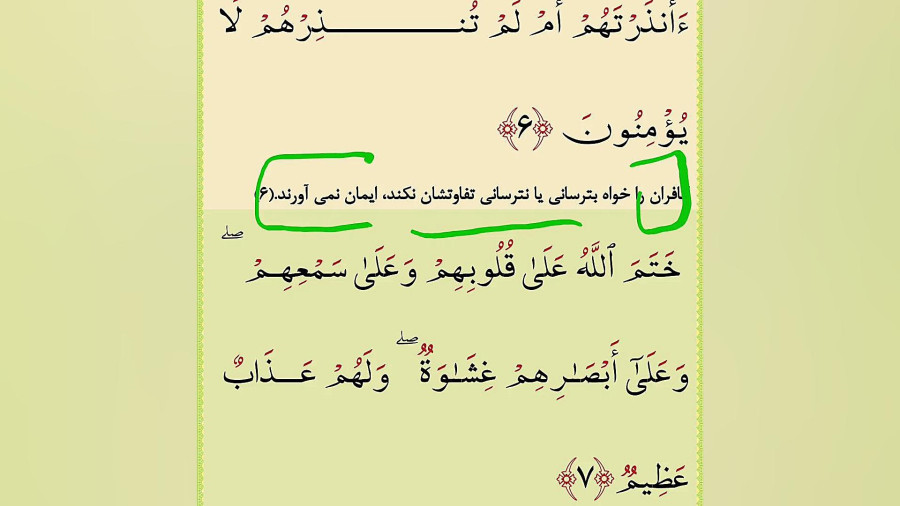 ءَأَنذَرْتَهُمْ أَمْ لَمْ تُنذِرْهُمْ لَا
يُؤْمِنُونَ ﴿۶﴾
کافران را خواه بترسانی یا نترسانی تفاوتشان نکند، ایمان نمی آورند.(۶)
خَتَمَ ٱللَّهُ عَلَىٰ قُلُوبِهِمْ وَعَلَىٰ سَمْعِهِمْ ۖ
وَعَلَىٰٓ أَبْصَـٰرِهِمْ غِشَـٰوَةٌ ۖ وَلَهُمْ عَذَابٌ
عَظِيمٌ ﴿۷﴾